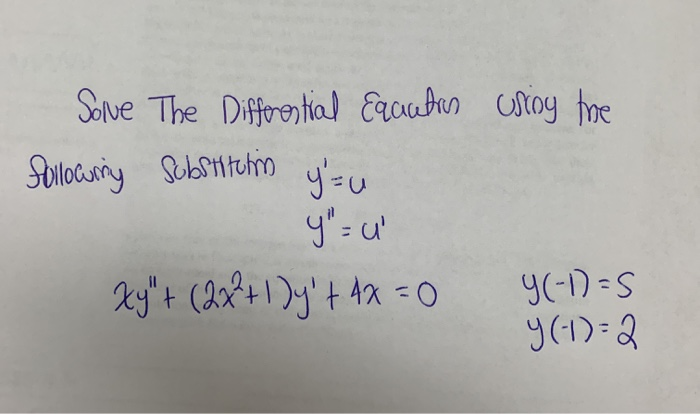 Solve The Differential Equation using the
following Substitution y'=u
y"=u'
xy"+(2x²+1)y'+4x=0 y(-1)=5
y(-1)=2